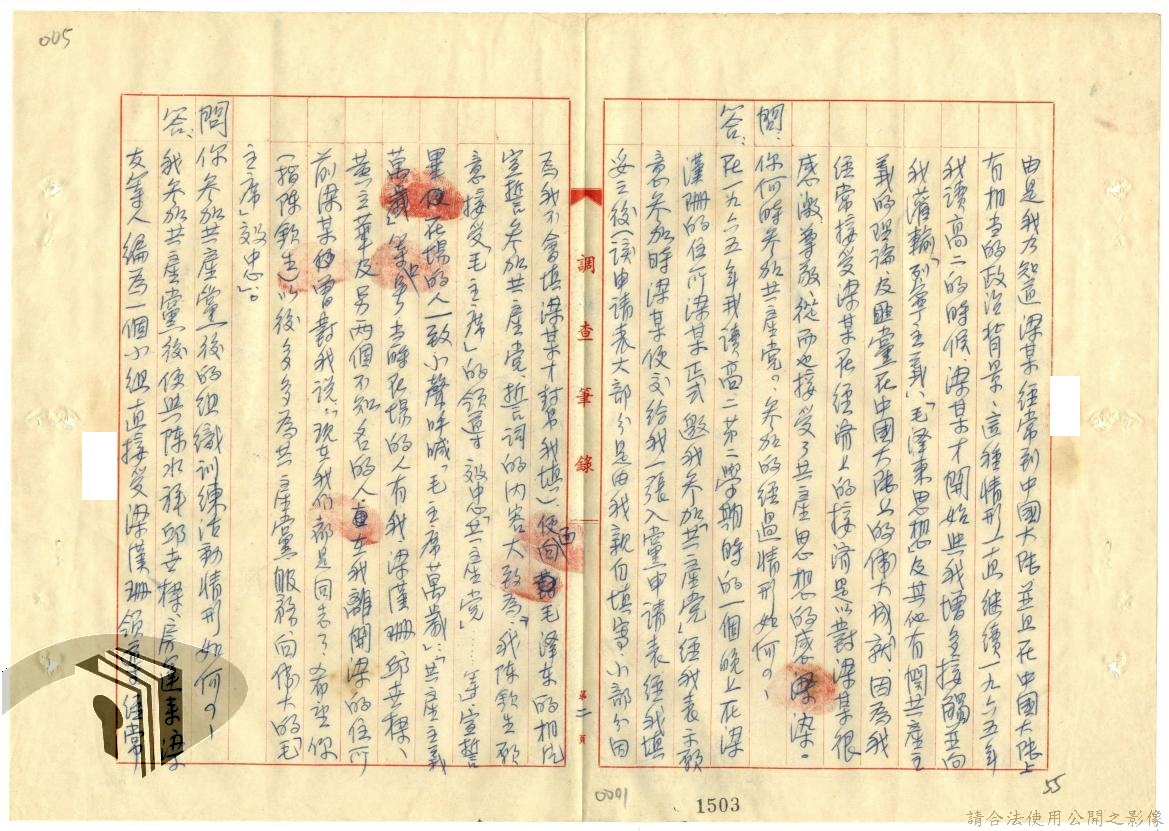 005
由是我乃知道梁某經常到中國大陸並且在中國大陸上
有相當的政治背景、這種情形一直继續一九六五年
我讀高二的時候、梁某才開始與我增多接觸並向
我灌輸「列寧主義」、「毛澤東思想」及其他有関共產主
義的理論及匪黨在中國大陸上的偉大成就因為我
經常接受梁某在經濟上的接濟是以對梁某很
感激尊敬從而也接受了共產思想的感染。
問：你何時參加共產党？參加的經過情形如何？
答：在一九六五年我讀高二第二學期時的一個晚上在梁
漢珊的住所梁某正式邀我參加「共產党」經我表示願
意參加時梁某便交給我一張入黨申請表經我填
妥之後（該申請表大部分是由我親自填寫小部分因
為我不會填梁某才幫我填）便面對毛澤東的相片
宣誓參加共產党、誓詞的内容大致為：「我陳欽生願
意接受「毛主席」的領導 效忠「共產党」……」等宣誓
畢 在場的人一致小聲呼喊「毛主席萬歲」、「共產主義
萬歲」等口号當時在場的人有我梁漢珊邱世樑、
黃立華及另兩個不知名的人、在我離開梁的住所
前梁某曾對我說：「現在我们都是同志了希望你
（指陳欽生）以後多多為共產黨服務向偉大的「毛
主席」效忠」。
問：你參加共產黨後的組織訓練活動情形如何？
答：我參加共產黨後便與陳水祥邱世樑、房
友軍等人編為一個小組直接受梁漢珊領導經常
調查筆錄
第二頁
0001
1503
55
請合法使用公開之影像